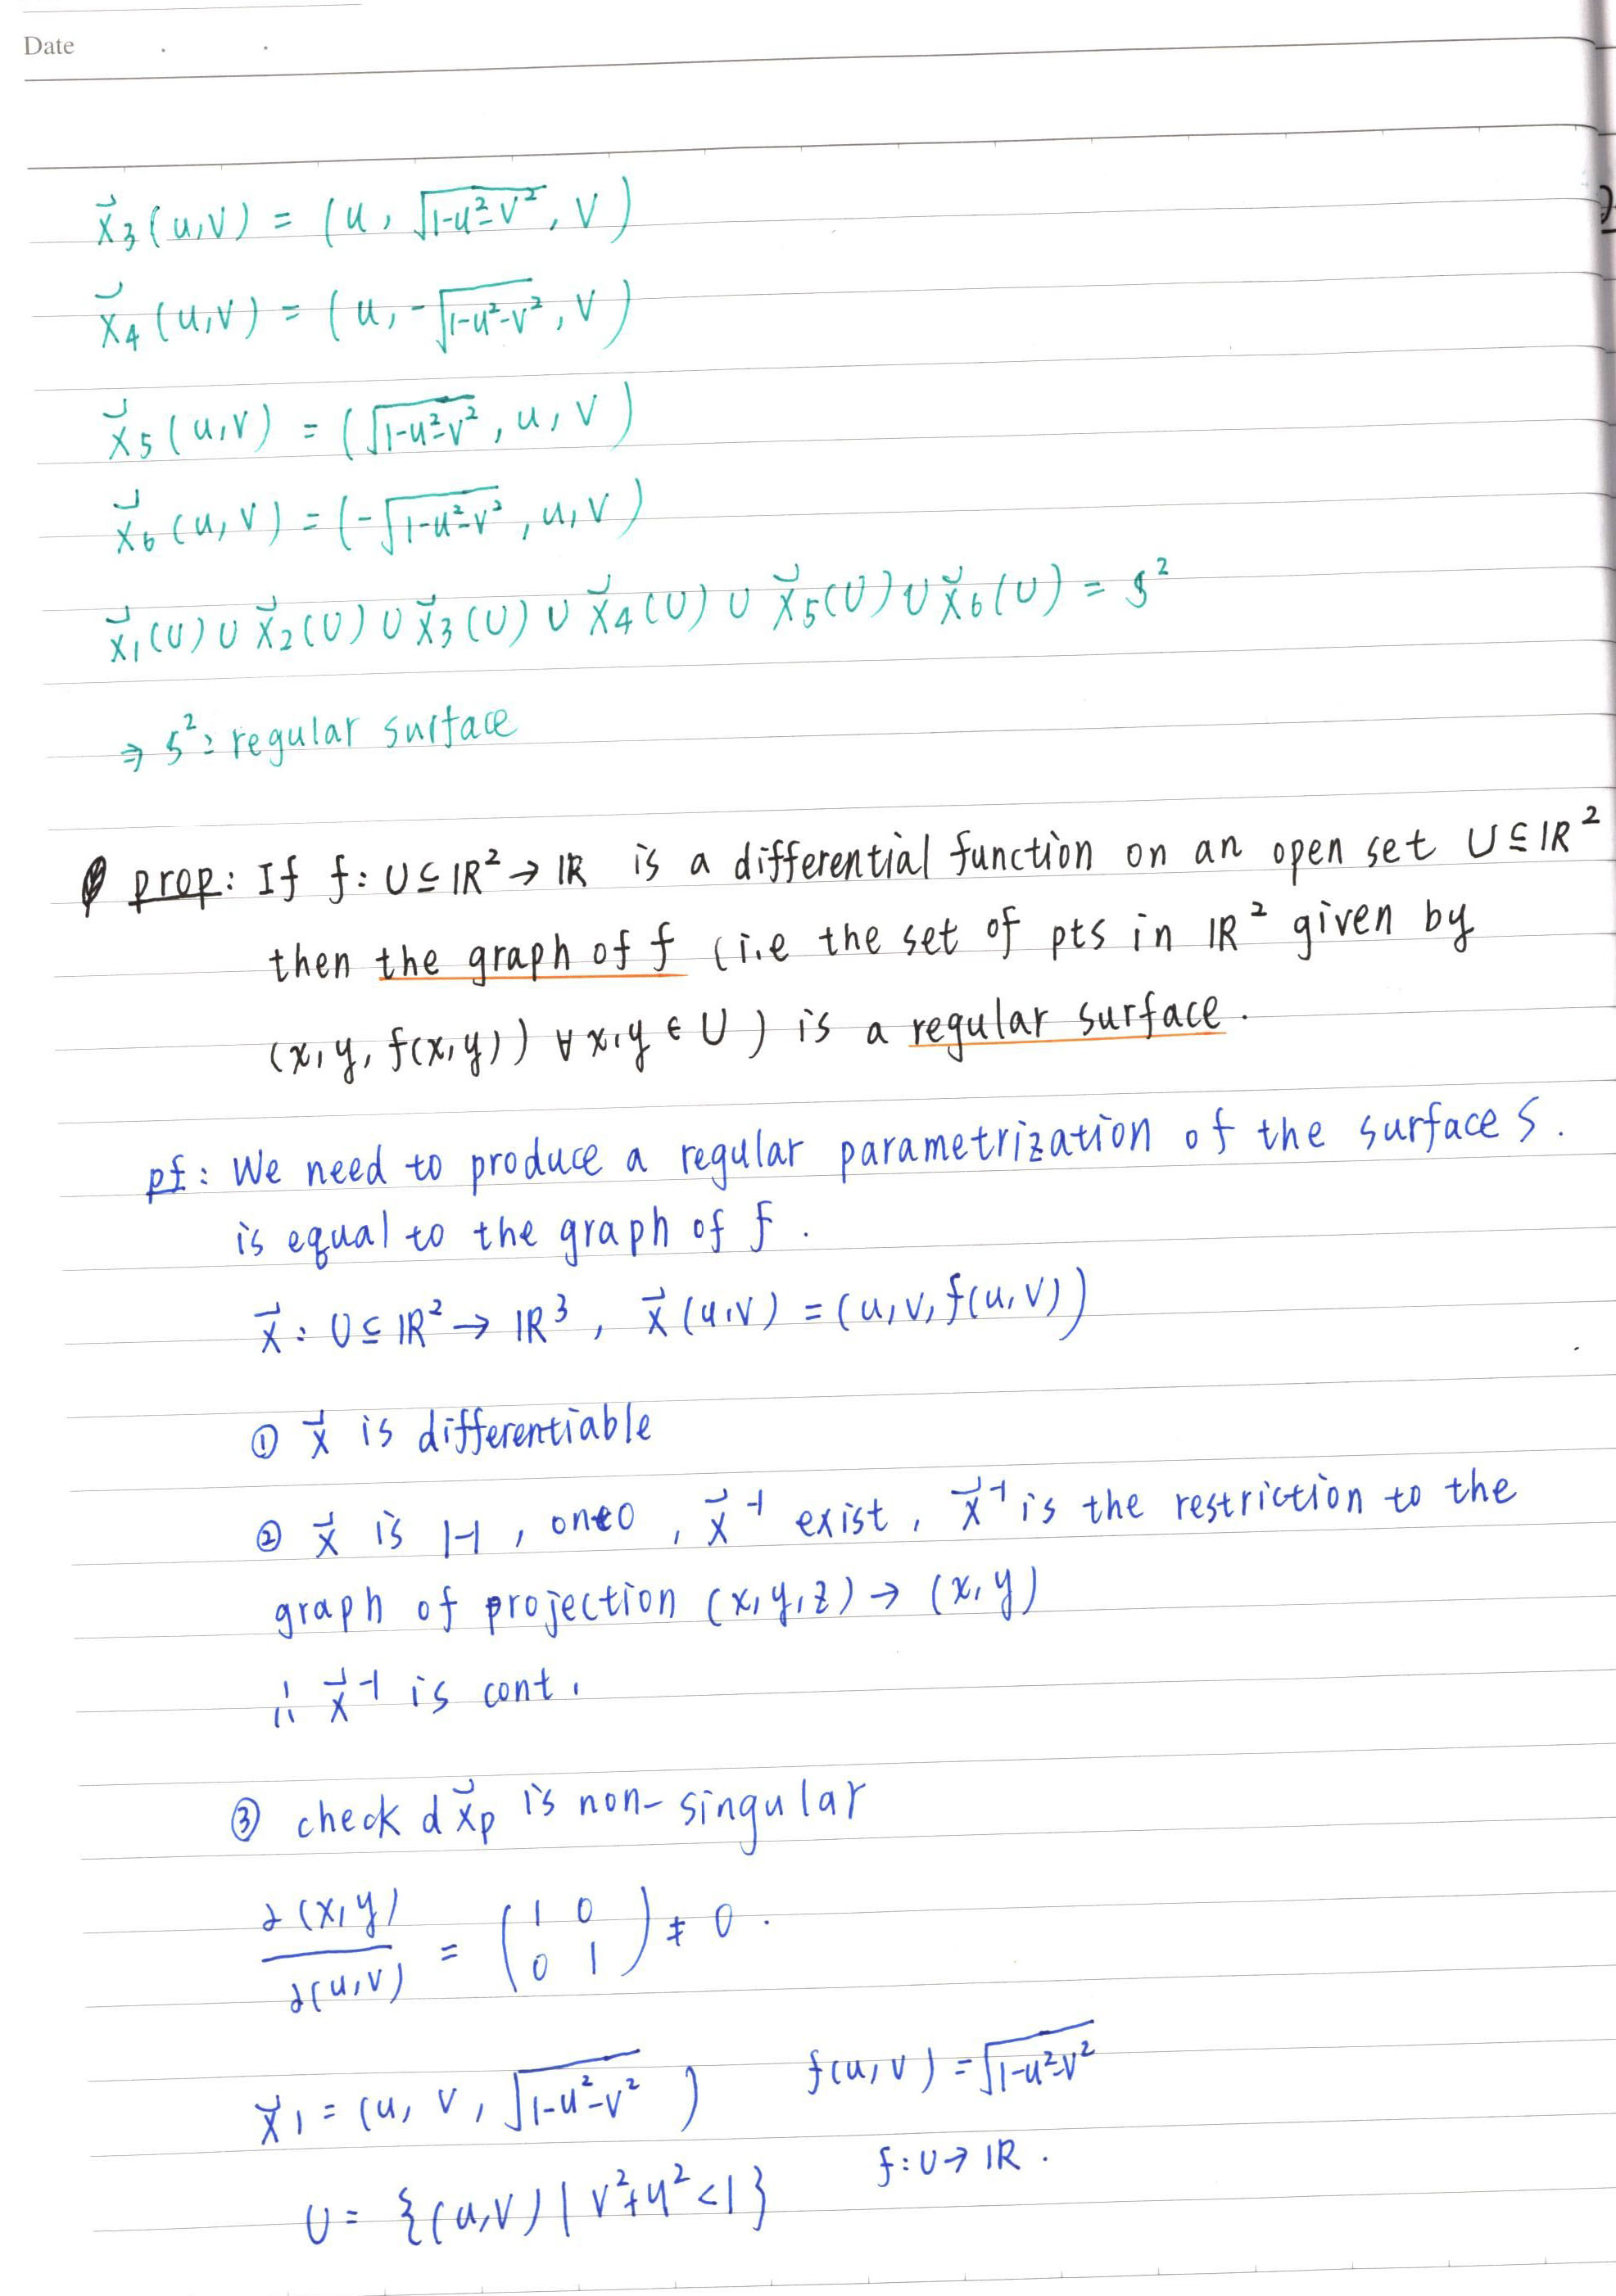 Date
x⃗₃(u,v) = (u, √(1-u²-v²), v)
x⃗₄(u,v) = (u, -√(1-u²-v²), v)
x⃗₅(u,v) = (√(1-u²-v²), u, v)
x⃗₆(u,v) = (-√(1-u²-v²), u, v)
x⃗₁(U) ∪ x⃗₂(U) ∪ x⃗₃(U) ∪ x⃗₄(U) ∪ x⃗₅(U) ∪ x⃗₆(U) = S²
⇒ S²: regular surface
prop: If f: U ⊆ ℝ² → ℝ is a differential function on an open set U ⊆ ℝ²
then the graph of f (i.e the set of pts in ℝ² given by
(x, y, f(x,y)) ∀ x,y ∈ U) is a regular surface.
pf: We need to produce a regular parametrization of the surface S.
is equal to the graph of f.
x⃗: U ⊆ ℝ² → ℝ³, x⃗(u,v) = (u, v, f(u,v))
① x⃗ is differentiable
② x⃗ is 1-1, onto, x⃗⁻¹ exist, x⃗⁻¹ is the restriction to the
graph of projection (x,y,z) → (x,y)
∴ x⃗⁻¹ is cont.
③ check dx⃗p is non-singular
∂(x,y)/∂(u,v) = (1 0; 0 1) ≠ 0.
x⃗₁ = (u, v, √(1-u²-v²)) f(u,v) = √(1-u²-v²)
U = {(u,v) | v²+u² < 1} f: U → ℝ.